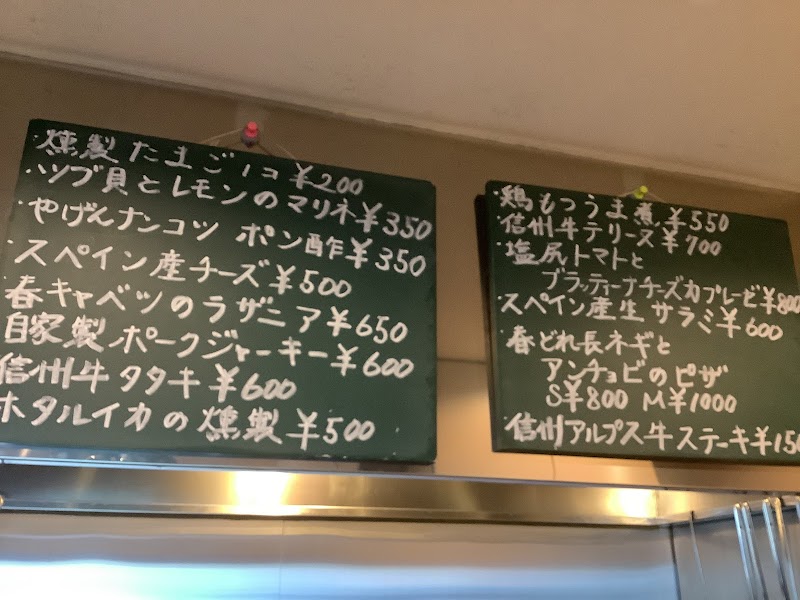 ・燻製たまご1コ ¥200
・ツブ貝とレモンのマリネ¥350
・やげんナンコツ ポン酢¥350
・スペイン産チーズ¥500
春キャベツのラザニア¥650
自家製ポークジャーキー¥600
信州牛タタキ¥600
ホタルイカの燻製¥500
・鶏もつうま煮 ¥550
・信州牛テリーヌ¥700
・塩尻トマトと
ブラッティーナチーズカプレーゼ¥800
・スペイン産生サラミ¥600
・春どれ長ネギと
アンチョビのピザ
S¥800 M¥1000
・信州アルプス牛ステーキ¥150